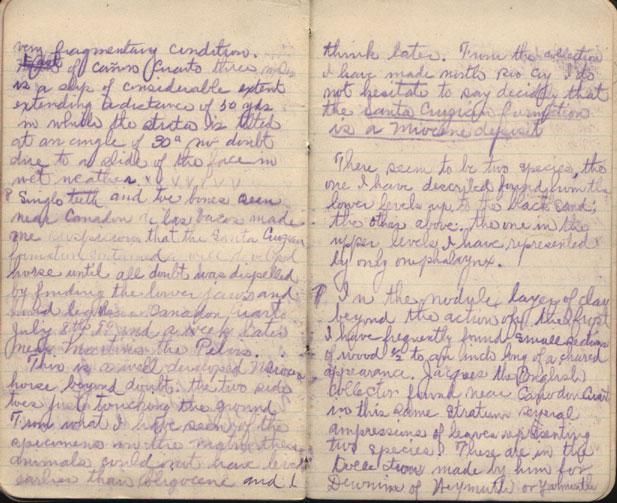 very fragmentary condition.
of Cañon Quarto three miles
is a slip of considerable extent
extending a distance of 50 yds
in which the strata is tilted
at an angle of 30° no doubt
due to a slide of the face in
wet weather
Single teeth and toe bones seen
near Canadon Las Vacas made
me suspicious that the Santa Cruzian
formation contained a well developed
horse until all doubt was dispelled
by finding the lower jaws and
hind legs Canadon Quarto
July 8th and a week later
near the Pelvis.
This is a well developed Miocene
horse beyond doubt. the two side
toes just touching the ground
From what I have seen of the
specimens these
animals could not have lived
earlier than Oligocene and I
think later. From the collection
I have made north I do
not hesitate to say decidedly that
the Santa Cruzian formation
is a Miocene deposit
There seem to be two species, the
one I have described found from the
lower levels up to the black sand;
the other above. the one in the
upper levels, I have represented
by only one phalynx.
In the nodule layer of clay
beyond the action of the frost
I have frequently found small sections
of wood ½ to an inch long of a charred
appearance. the English
Collector found near
in this same stratum several
impressions of leaves representing
two species! These are in the
Collection made by him for
of Weymouth or